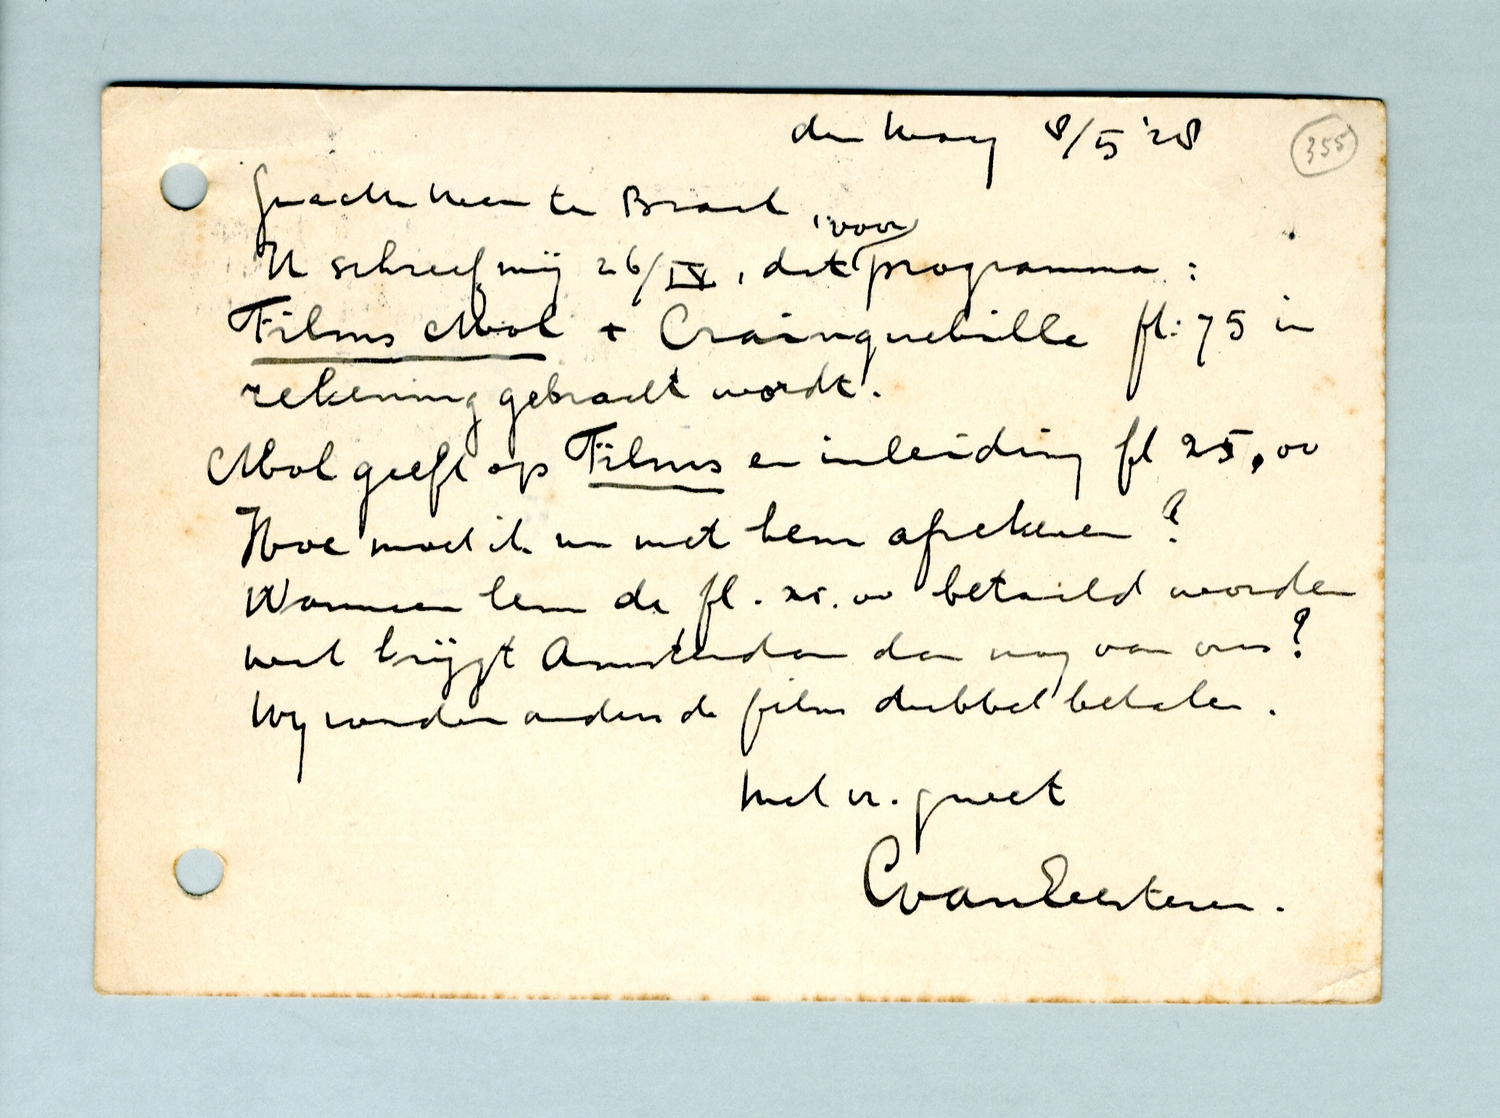 den Haag 8/5 '28
355
Geachte Heer ter Braak,
voor
U schreef mij 26/IV, dat programma :
Films Mol + Crainquebille fl: 75 in
rekening gebracht wordt.
Mol geeft op Films en inleiding fl 25,00
Hoe moet ik nu met hem afrekenen ?
Wanneer hem de fl. 25.00 betaald worden
wat krijgt Amsterdam dan nog van ons?
Wij zouden anders de film dubbel betalen.
Met vr. groet
C van Eesteren.